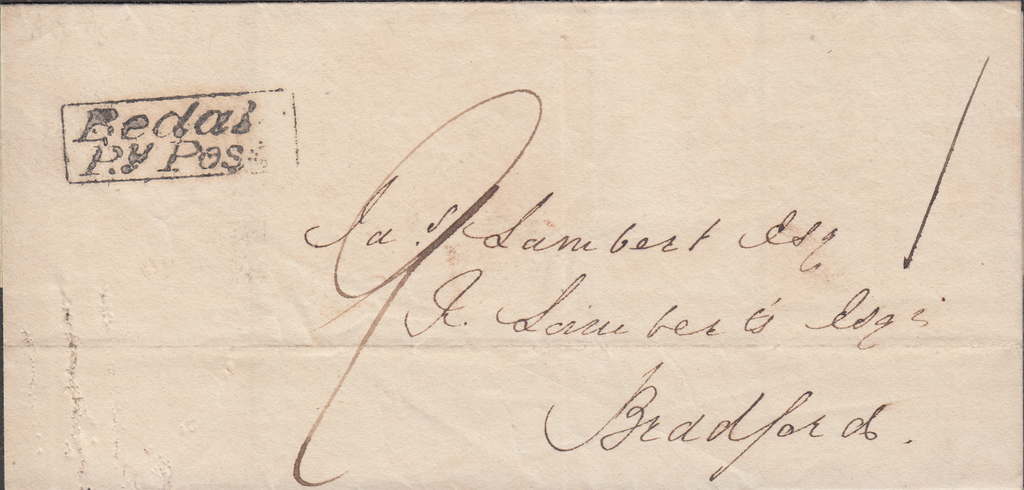 Bedal
P.y Pos
9
Jas. Lambert Esq
R. Lambert's Esqr
Bradford.